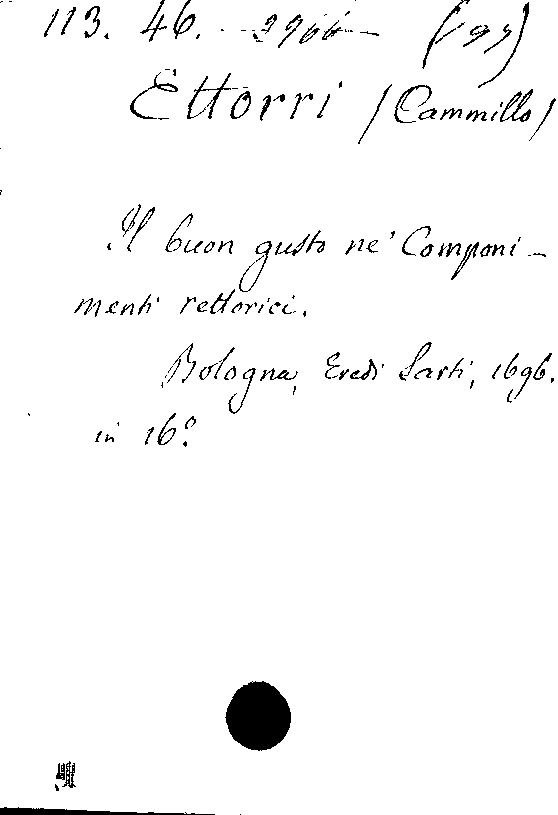 113. 46.
Ettorri / (Cammillo /
Il buon gusto ne' Componi-
menti rettorici.
Bologna, Eredi Sarti, 1696.
in 16º